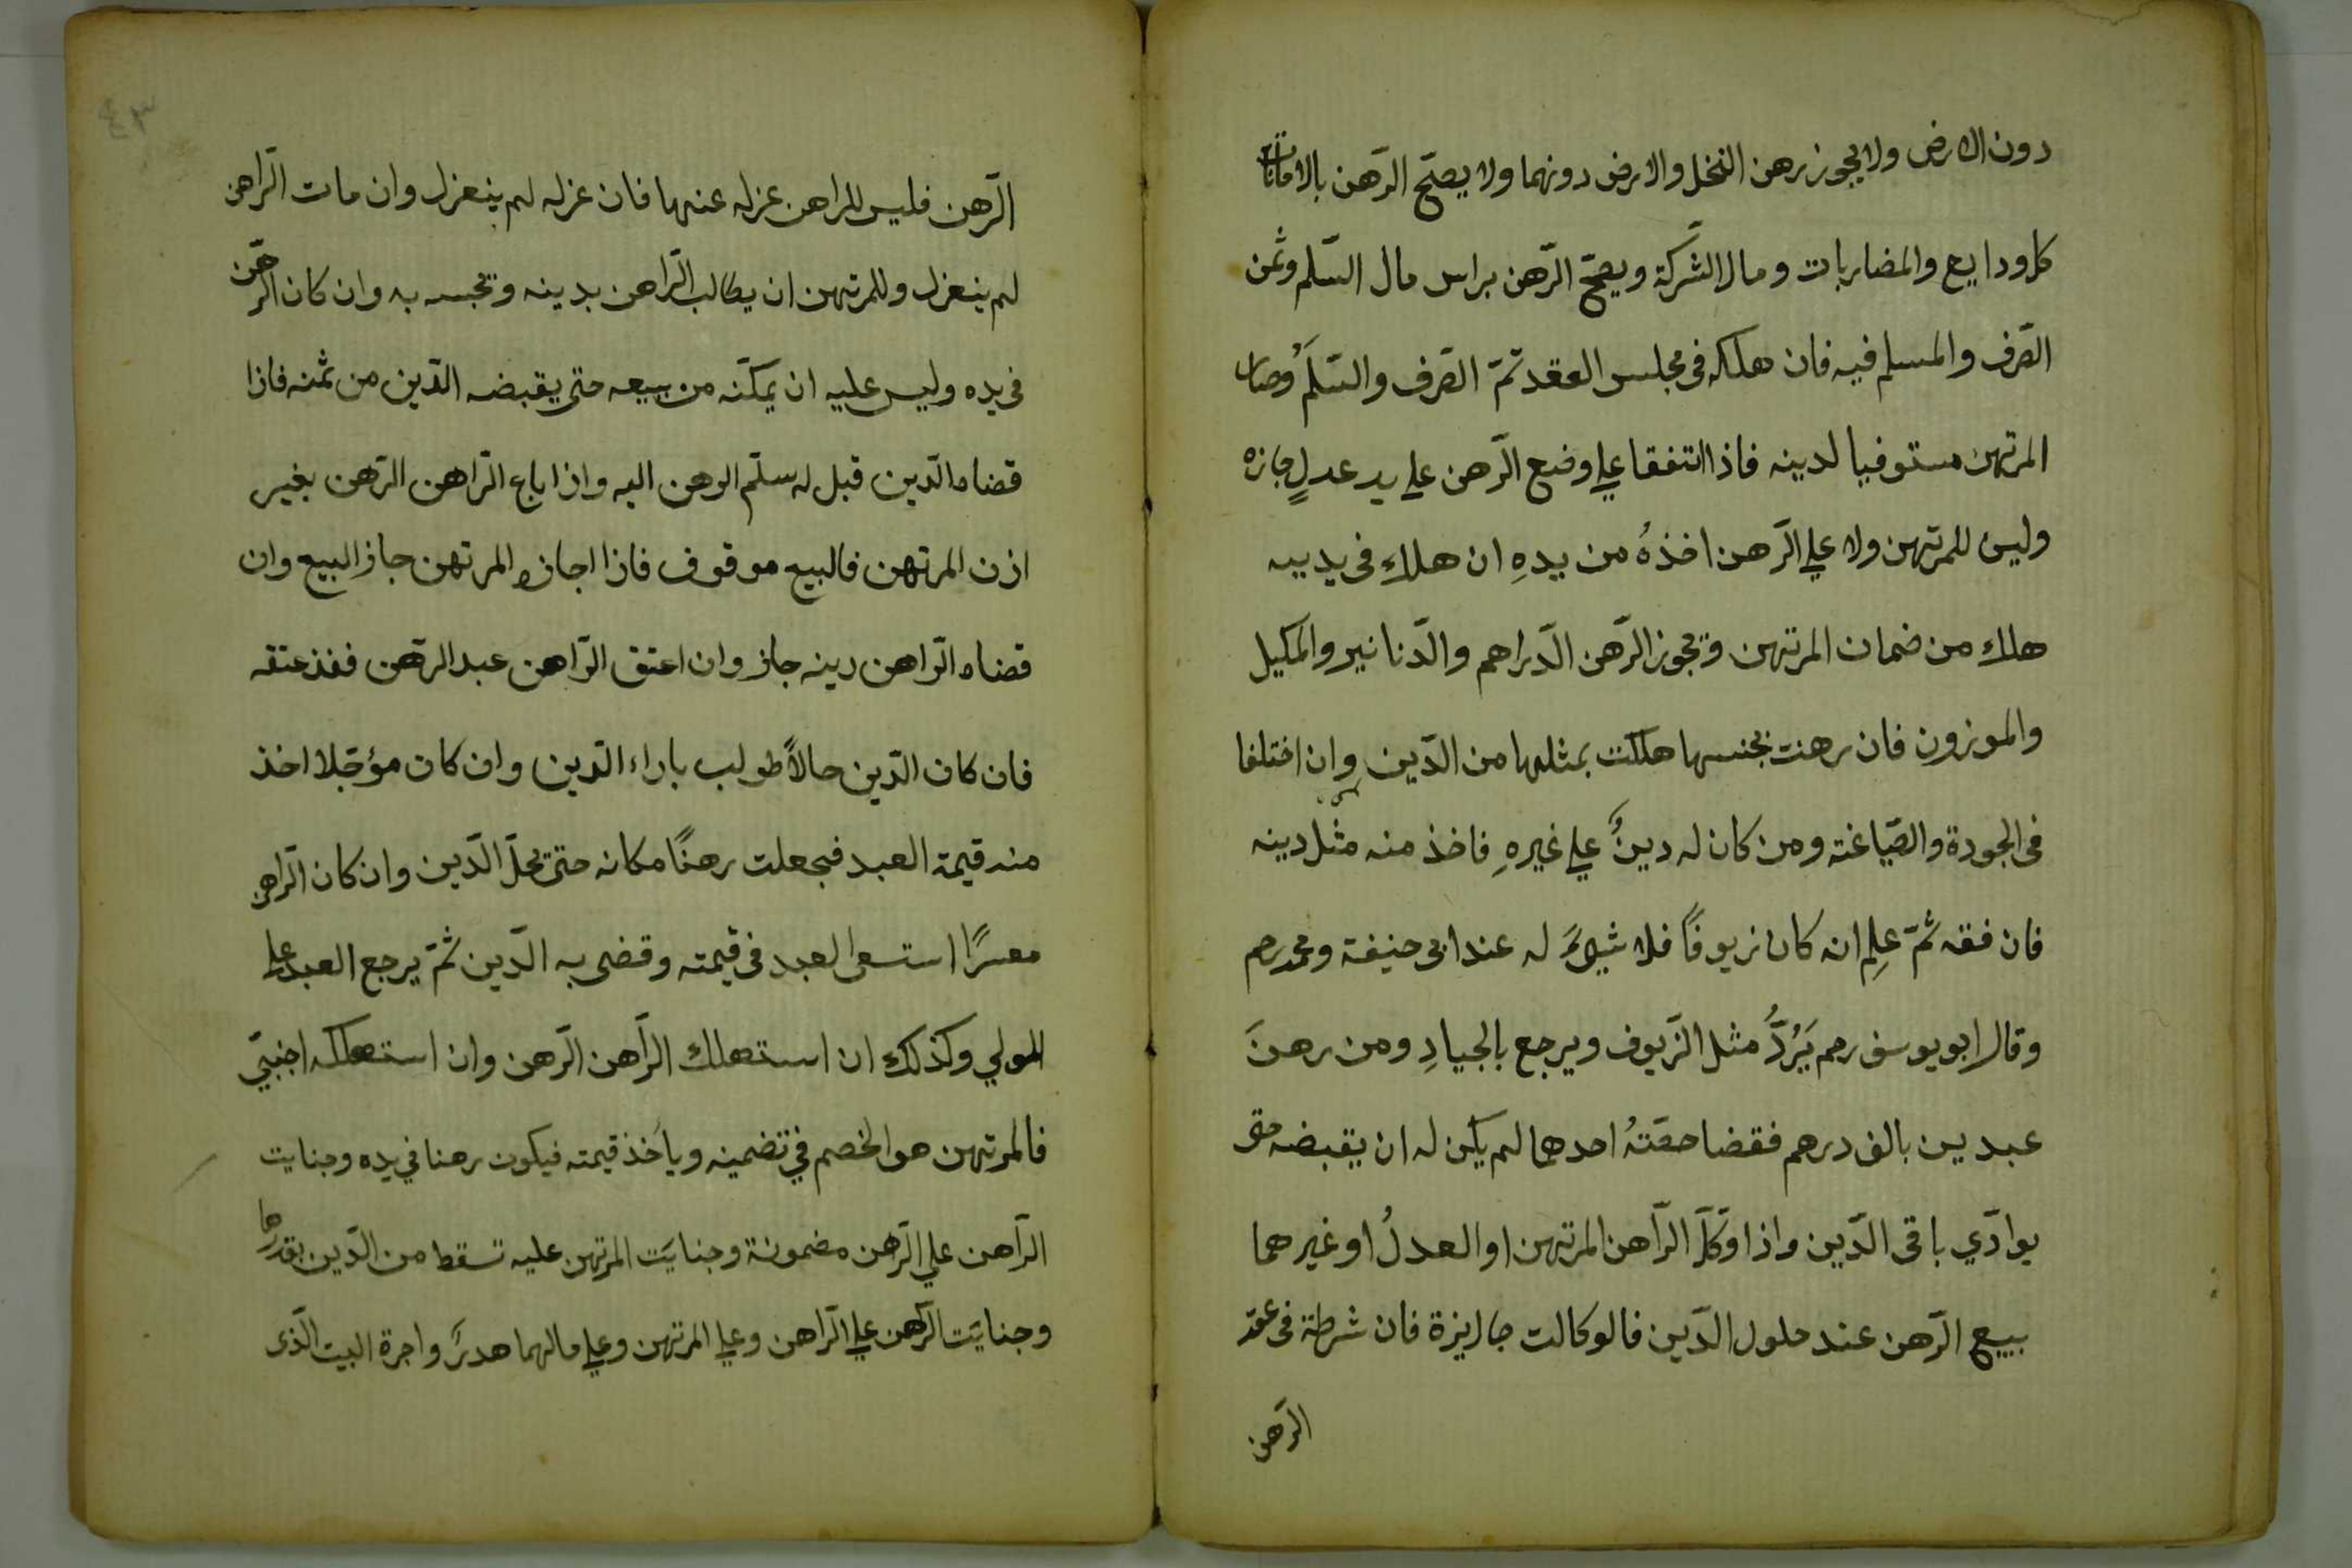 دون الارض ولا يجوز رهن النخل والارض دونهما ولا يصحّ الرّهن بالامانات
كلودايع والمضاربات ومال الشّركة ويصحّ الرّهن براس مال السّلم وثمن
الصّرف والمسلم فيه فان هلكه فى مجلس العقد تمّ الصّرف والسّلمُ وصار
المرتهن مستوفيا لدينه فاذا اتفقا علي وضع الرّهن علي يد عدلٍ جازه
وليس للمرتهن ولا علي الرّهن اخذهُ من يدهِ ان هلك فى يديه
هلك من ضمان المرتهن وتجوز الرّهن الدّراهم والدّنانير والمكيل
والموزون فان رهنت بجنسها هلكت بمثلها من الدّين وان اختلفا
فى الجودة والصّياغته ومن كان له دينٌ علي غيرهِ فاخذ منه مثل دينه
فان فقه ثمّ علِم انه كان زيوفاً فلا شيءَ له عند ابى حنيفة ومحمد رحم
وقال ابو يوسف رحم يَرُدُّ مثل الزّيوف ويرجع بالجيادِ ومن رهنَ
عبدين بالف درهم فقضا حصّتهُ احدهما لم يكن له ان يقبضه حتى
يوادّي باقى الدّين واذا وكّل الرّاهن المرتهن او العدلُ او غيرهما
ببيع الرّهن عند حلول الدّين فالوكالت جاايزة فان شرطة فى عقد
الرّهن
٤٣
الرّهن فليس للراهن عزله عنها فان عزله لم ينعزل وان مات الرّاهن
لم ينعزل وللمرتهن ان يطالب الرّاهن بدينه وتحبسه به وان كان الرّهن
فى يده وليس عليه ان يمكنّه من بيعه حتى يقبضه الدّين من ثمنه فاذا
قضاه الدّين قبل له سلّم الرهن اليه واذا باع الرّاهن الرّهن بغير
اذن المرتهن فالبيع موقوف فاذا اجازه المرتهن جاز البيع وان
قضاه الرّاهن دينه جاز وان اعتق الرّاهن عبد الرّهن ففذ عتقه
فان كان الدّين حالاً طولب باداء الدّين وان كان مؤجّلا اخذ
منه قيمة العبد فجعلت رهنًا مكانه حتى يحلّ الدّين وان كان الرّاهن
معسرًا استسعى العبد فى قيمته وقضى به الدّين ثمّ يرجع العبد علي
المولي وكذلك ان استهلك الرّاهن الرّهن وان استهلكه اجنبيّ
فالمرتهن هو الخصم في تضمينه ويأخذ قيمته فيكون رهنا في يده وجنايت
الرّاهن علي الرّهن مضمونة وجنايَت المرتهن عليه تسقط من الدّين بقدرها
وجنايَت الرّهن علي الرّاهن وعلي المرتهن وعلي مالهما هدرً واجرة البيت الّذى